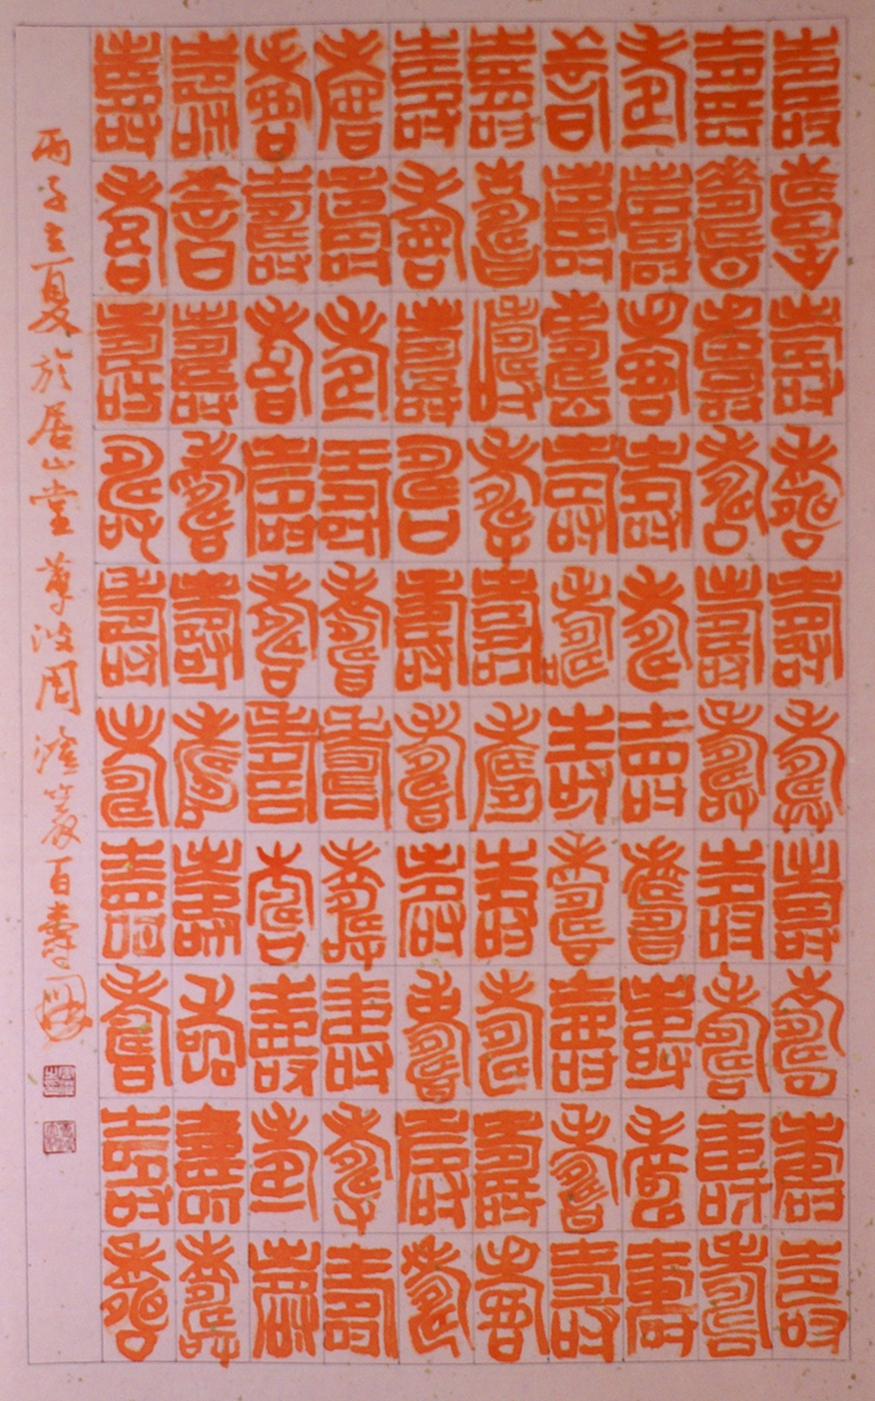 壽壽壽壽壽壽壽壽壽壽
壽壽壽壽壽壽壽壽壽壽
壽壽壽壽壽壽壽壽壽壽
壽壽壽壽壽壽壽壽壽壽
壽壽壽壽壽壽壽壽壽壽
壽壽壽壽壽壽壽壽壽壽
壽壽壽壽壽壽壽壽壽壽
壽壽壽壽壽壽壽壽壽壽
壽壽壽壽壽壽壽壽壽壽
壽壽壽壽壽壽壽壽壽壽
丙子之夏於居山堂波周篆百壽圖